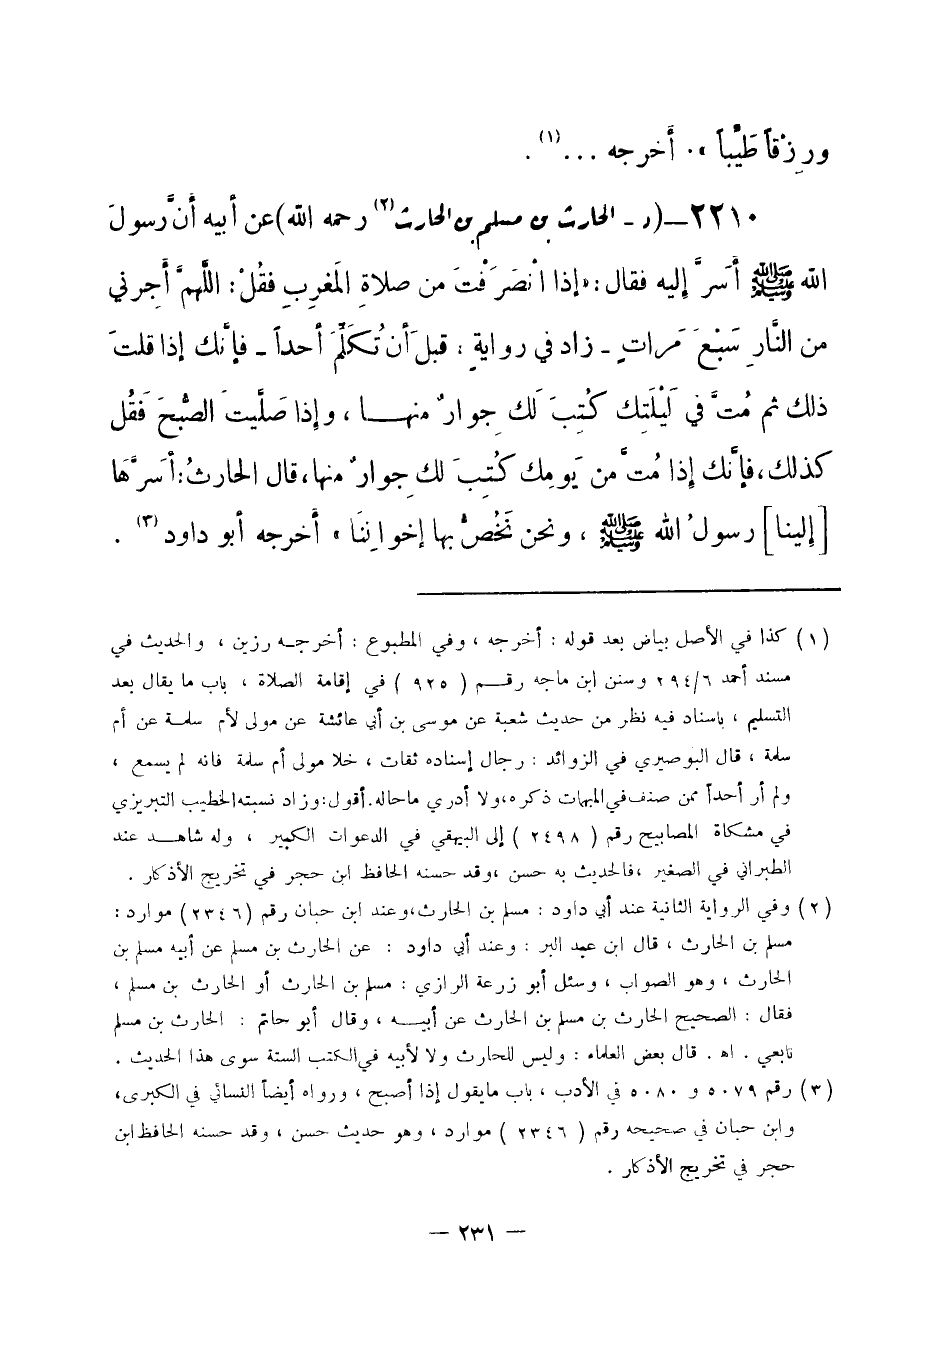 ورِزْقاً طَيِّباً ». أَخرجه ... (١) .
٢٢١٠ – (د - الحارث بن مسلم بن الحارث (٢) رحمه الله) عن أبيه أَنَّ رسولَ
الله ﷺ أَسَرَّ إِليه فقال : «إذا انْصَرَفْتَ من صلاةِ المَغرِبِ فقُلْ: اللَّهمَّ أَجِرني
من النَّارِ سَبْعَ مَرات - زاد في روايةٍ : قبلَ أَن تُكَلِّمَ أَحداً - فإِنَّك إذا قلتَ
ذلك ثم مُتَّ في لَيْلَتِك كُتِبَ لك جِوارٌ منهـــا ، وإِذا صَلَّيتَ الصُّبحَ فَقُل
كذلك، فإِنَّك إذا مُتَّ من يَومِك كُتِبَ لك جِوارٌ منها، قال الحارثُ: أَسَرَّها
[إِلينا] رسولُ الله ﷺ ، ونحن نَخُصُّ بها إخوانِنَا » أَخرجه أبو داود (٣) .
(١) كذا في الأصل بياض بعد قوله : أخرجه ، وفي المطبوع : أخرجـه رزين ، والحديث في
مسند أحمد ٢٩٤/٦ وسنن ابن ماجه رقـم ( ٩٢٥ ) في إقامة الصلاة ، باب ما يقال بعد
التسليم ، باسناد فيه نظر من حديث شعبة عن موسى بن أبي عائشة عن مولى لأم سلمة عن أم
سلمة ، قال البوصيري في الزوائد : رجال إسناده ثقات ، خلا مولى أم سلمة فانه لم يسمع ،
ولم أر أحداً ممن صنف في المبهات ذكره، ولا أدري ماحاله. أقول: وزاد نسبته الخطيب التبريزي
في مشكاة المصابيح رقم ( ٢٤٩٨ ) إلى البيهقي في الدعوات الكبير ، وله شاهــد عند
الطبراني في الصغير ، فالحديث به حسن ، وقد حسنه الحافظ ابن حجر في تخريج الأذكار .
(٢) وفي الرواية الثانية عند أبي داود : مسلم بن الحارث، وعند ابن حبان رقم (٢٣٤٦) موارد :
مسلم بن الحارث ، قال ابن عبد البر : وعند أبي داود : عن الحارث بن مسلم عن أبيه مسلم بن
الحارث ، وهو الصواب ، وسئل أبو زرعة الرازي : مسلم بن الحارث أو الحارث بن مسلم ،
فقال : الصحيح الحارث بن مسلم بن الحارث عن أبيــه ، وقال أبو حاتم : الحارث بن مسلم
تابعي . اهـ . قال بعض العلماء : وليس للحارث ولا لأبيه في الكتب الستة سوى هذا الحديث .
(٣) رقم ٥٠٧٩ و ٥٠٨٠ في الأدب ، باب مايقول إذا أصبح ، ورواه أيضاً النسائي في الكبرى،
وابن حبان في صحيحه رقم ( ٢٣٤٦ ) موارد ، وهو حديث حسن ، وقد حسنه الحافظ ابن
حجر في تخريج الأذكار .
– ٢٣١ –